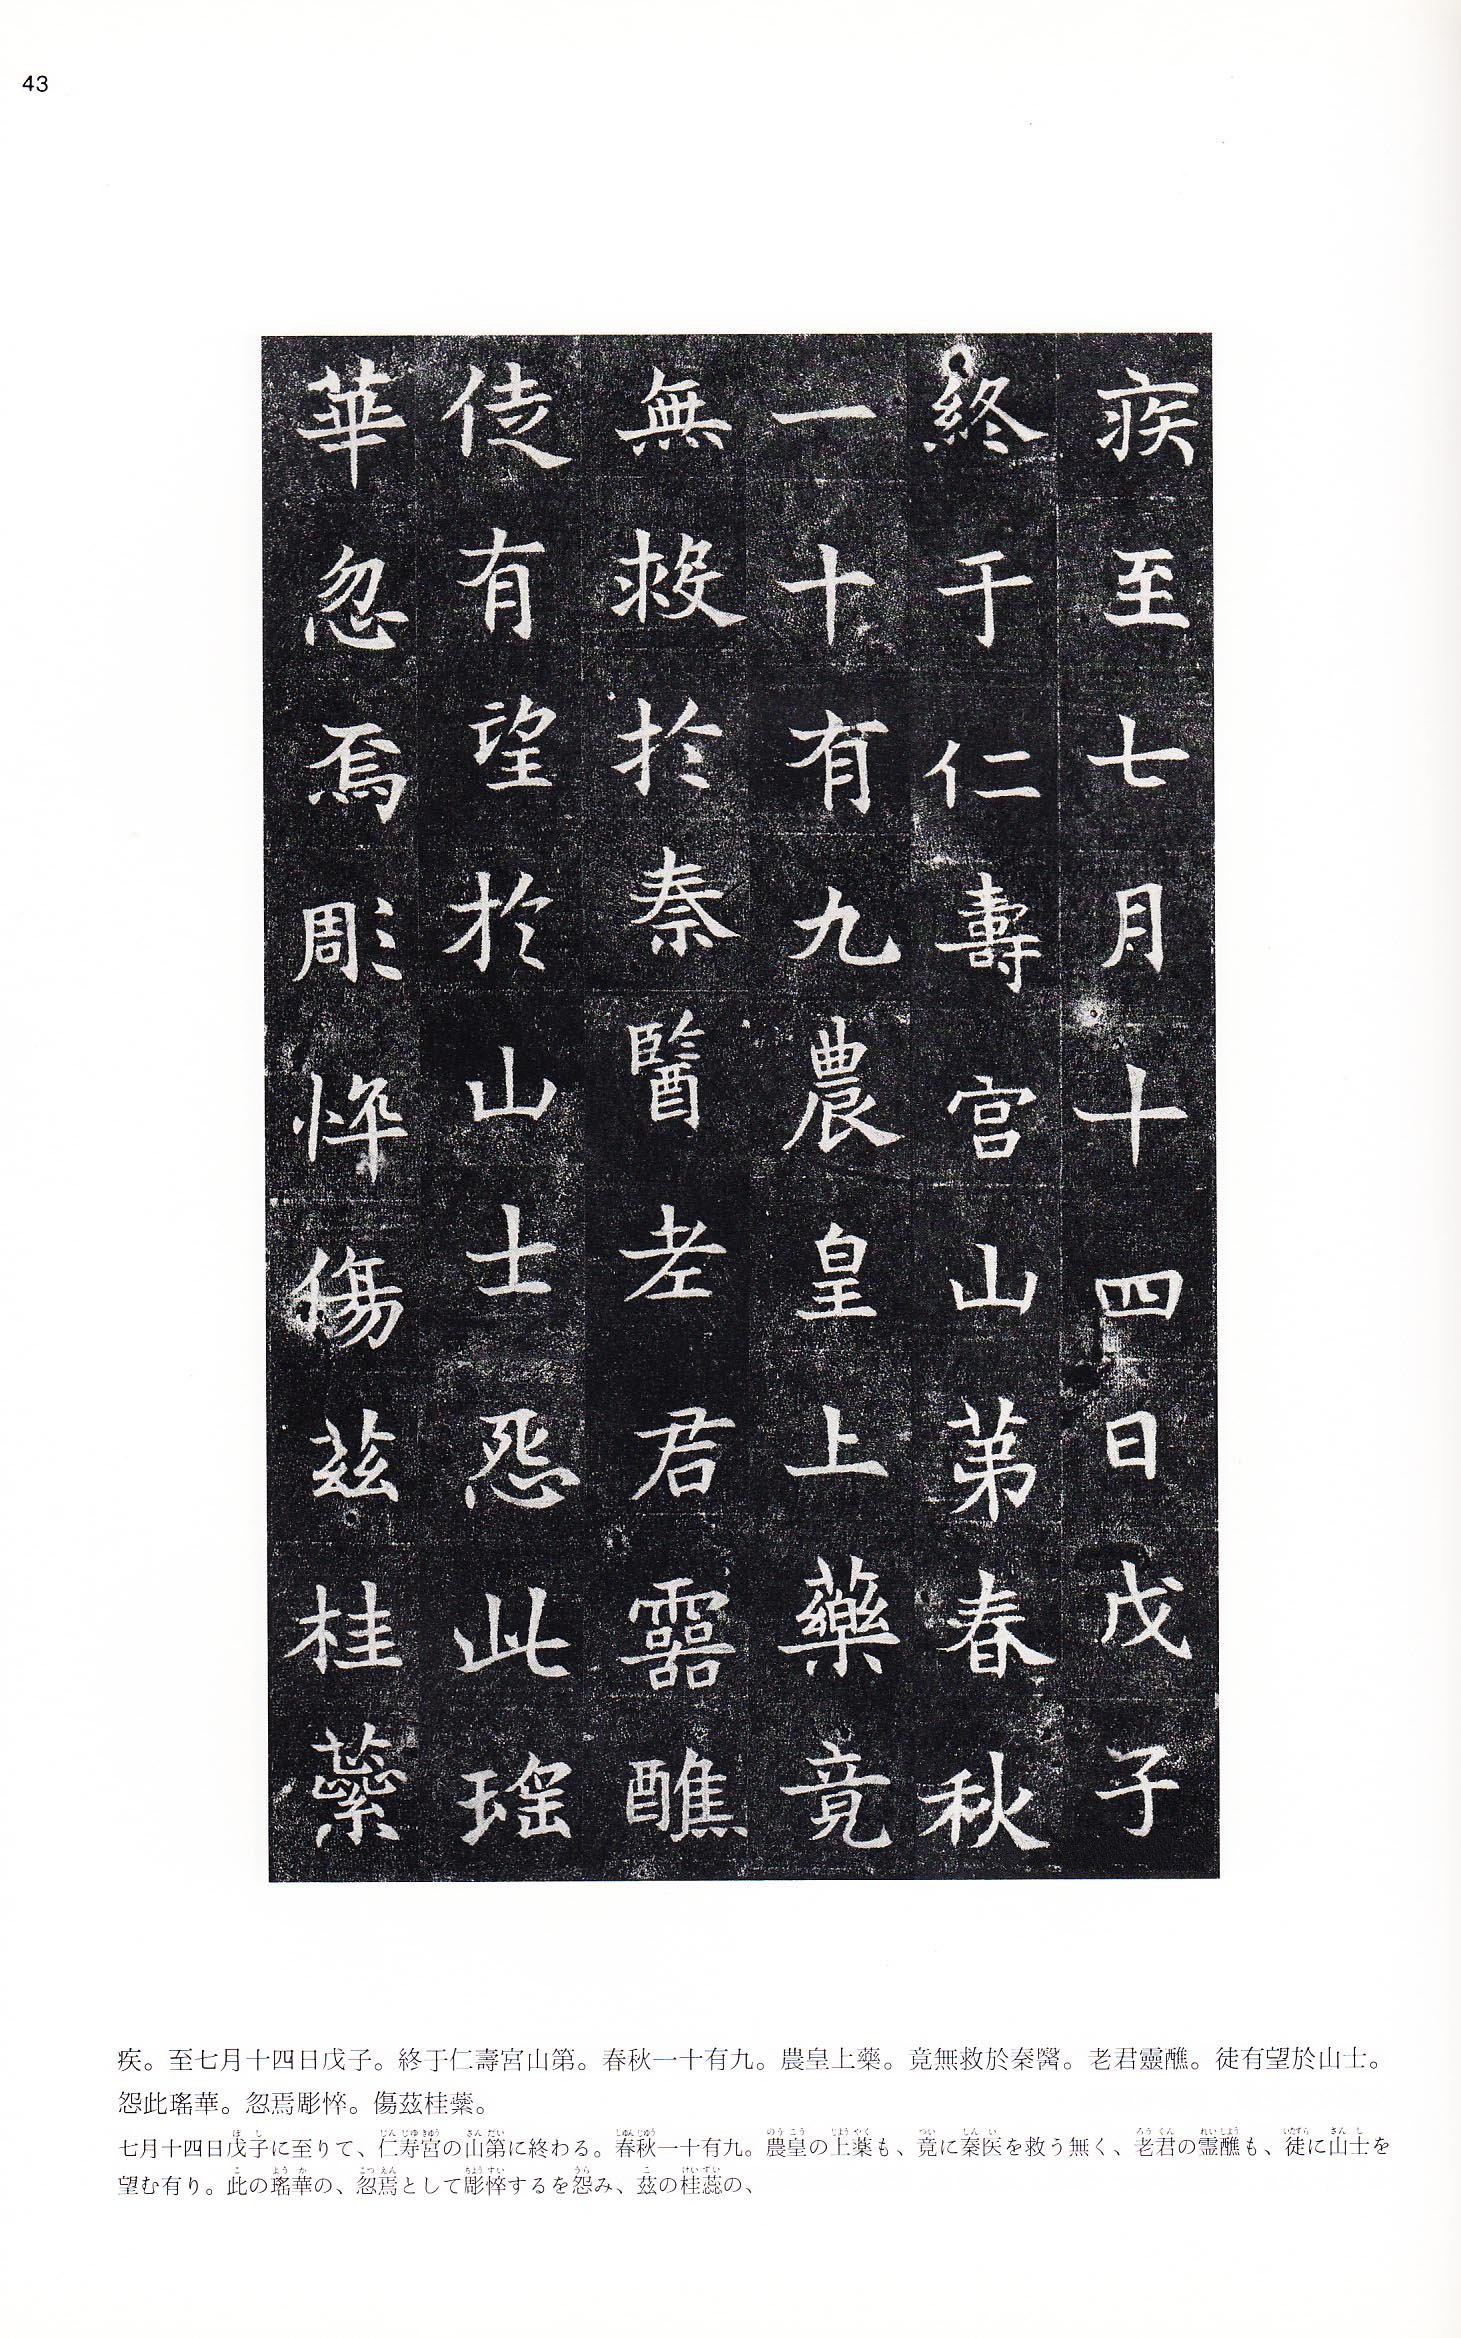 43
疾至七月十四日戊子
終于仁壽宮山第春秋
一十有九農皇上藥竟
無救於秦醫老君靈醮
徒有望於山士怨此瑤
華忽焉彫悴傷茲桂蘂
疾。至七月十四日戊子。終于仁壽宮山第。春秋一十有九。農皇上藥。竟無救於秦醫。老君靈醮。徒有望於山士。
怨此瑤華。忽焉彫悴。傷茲桂蘂。
七月十四日戊子に至りて、仁寿宮の山第に終わる。春秋一十有九。農皇の上薬も、竟に秦医を救う無く、老君の霊醮も、徒に山士を
望む有り。此の瑤華の、忽焉として彫悴するを怨み、茲の桂蕊の、